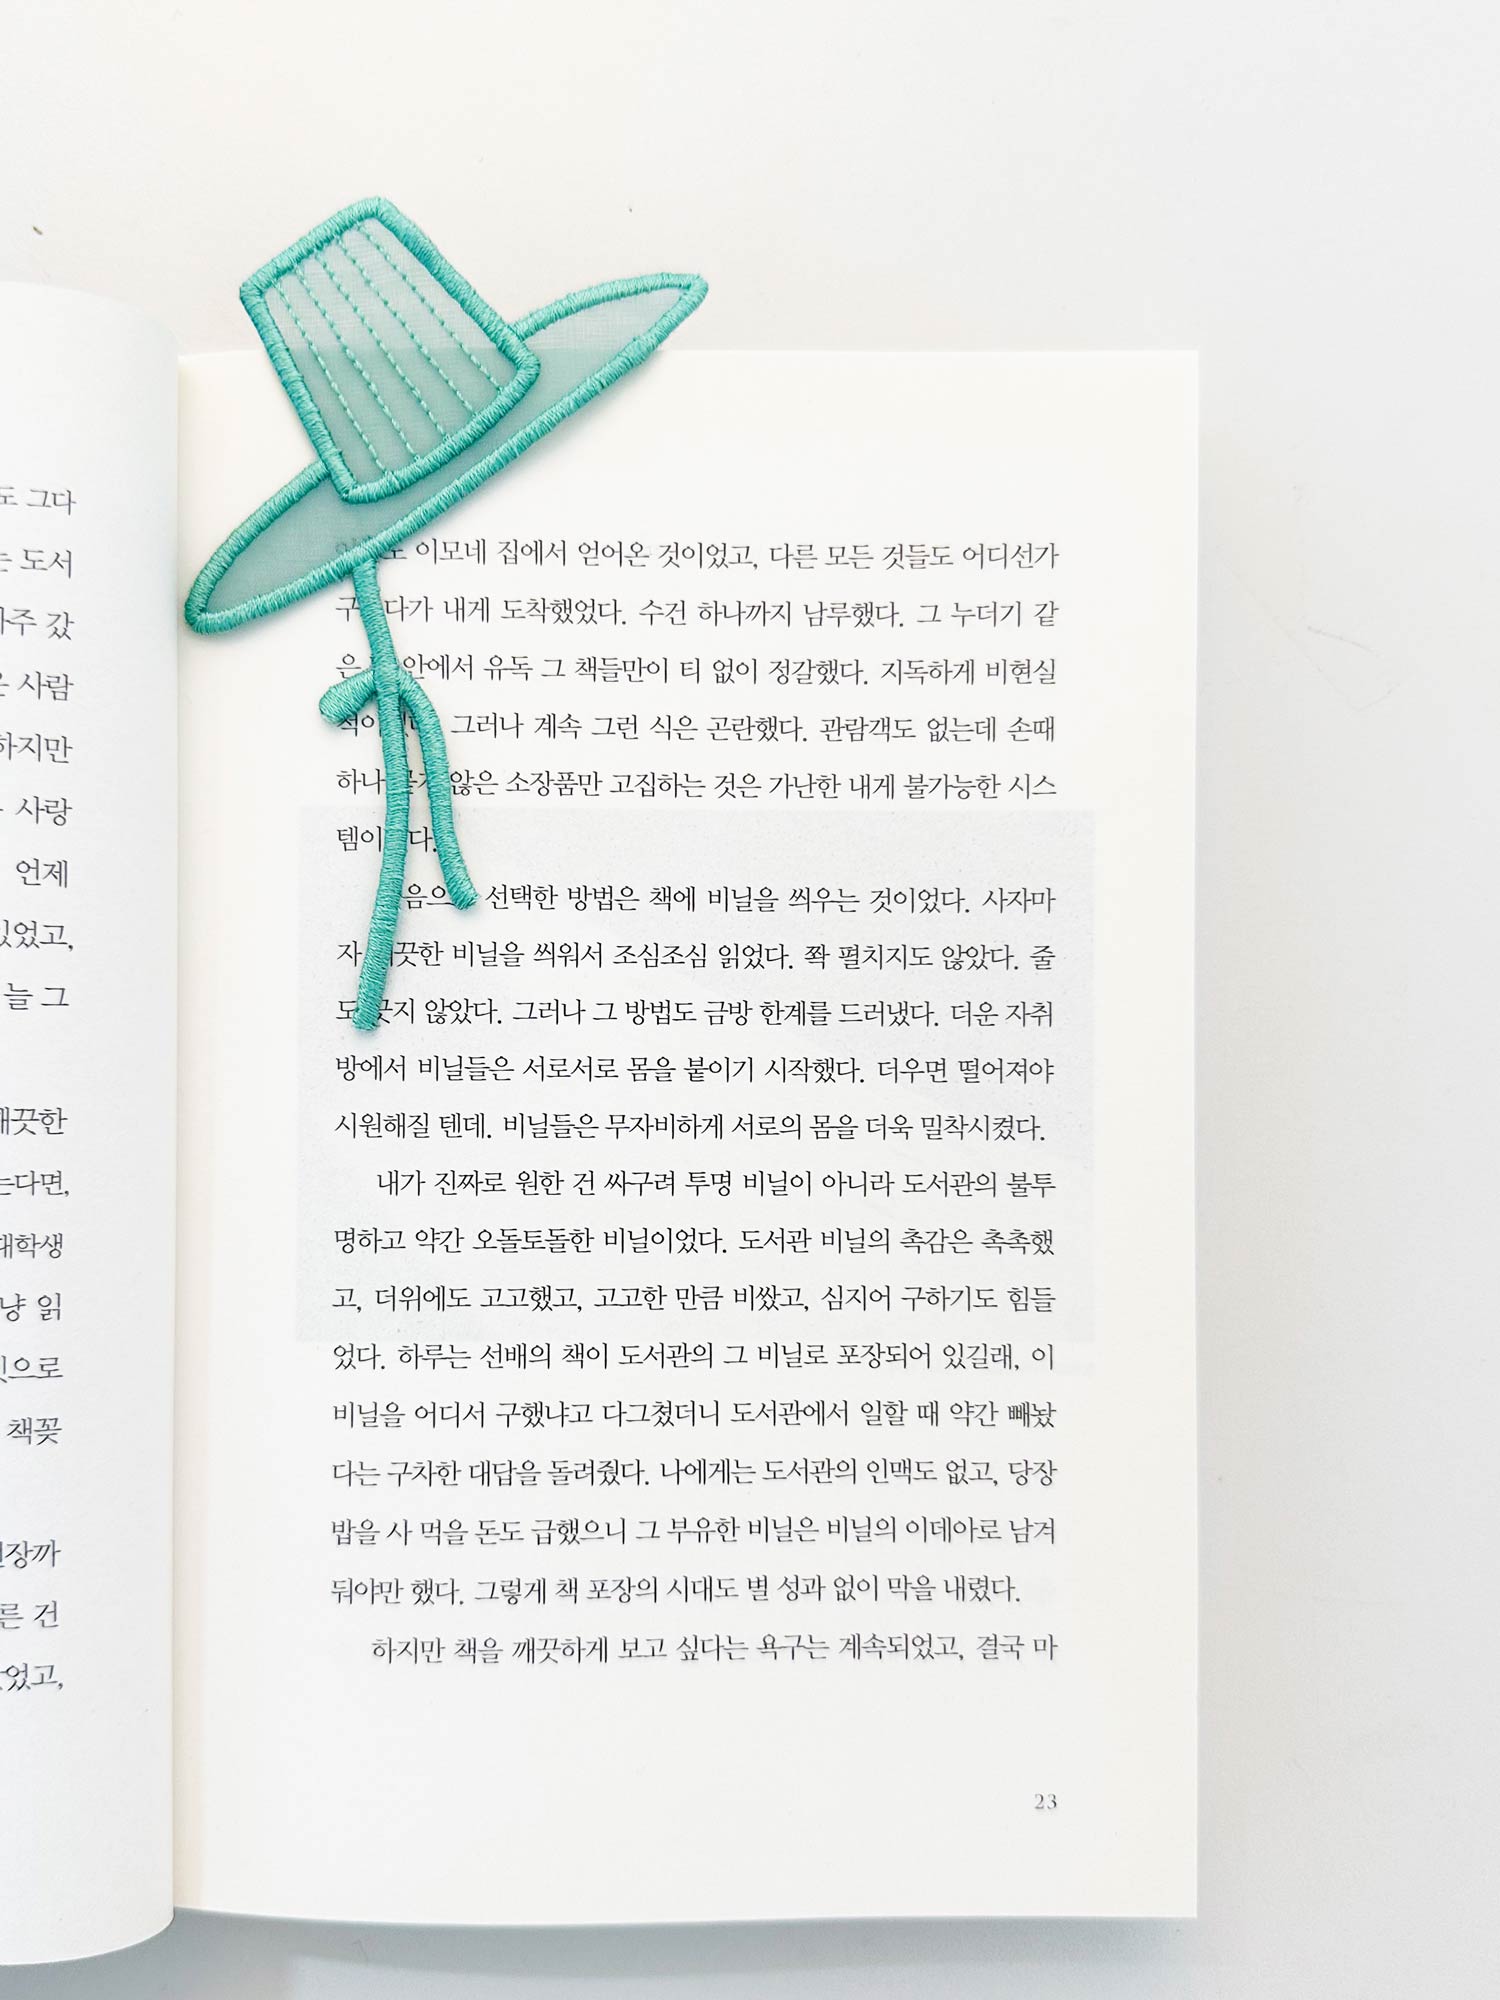 도 그다
는 도서
아주 갔
은 사람
하지만
사랑
언제
있었고,
늘 그
깨끗한
는다면,
대학생
냥 읽
것으로
책꽂
른 건
았었고,
이모네 집에서 얻어온 것이었고, 다른 모든 것들도 어디선가
구 다가 내게 도착했었다. 수건 하나까지 남루했다. 그 누더기 같
은 안에서 유독 그 책들만이 티 없이 정갈했다. 지독하게 비현실
적이 그러나 계속 그런 식은 곤란했다. 관람객도 없는데 손때
하나 않은 소장품만 고집하는 것은 가난한 내게 불가능한 시스
템이 다.
음으 선택한 방법은 책에 비닐을 씌우는 것이었다. 사자마
자 끗한 비닐을 씌워서 조심조심 읽었다. 쫙 펼치지도 않았다. 줄
도 긋지 않았다. 그러나 그 방법도 금방 한계를 드러냈다. 더운 자취
방에서 비닐들은 서로서로 몸을 붙이기 시작했다. 더우면 떨어져야
시원해질 텐데. 비닐들은 무자비하게 서로의 몸을 더욱 밀착시켰다.
내가 진짜로 원한 건 싸구려 투명 비닐이 아니라 도서관의 불투
명하고 약간 오돌토돌한 비닐이었다. 도서관 비닐의 촉감은 촉촉했
고, 더위에도 고고했고, 고고한 만큼 비쌌고, 심지어 구하기도 힘들
었다. 하루는 선배의 책이 도서관의 그 비닐로 포장되어 있길래, 이
비닐을 어디서 구했냐고 다그쳤더니 도서관에서 일할 때 약간 빼놨
다는 구차한 대답을 돌려줬다. 나에게는 도서관의 인맥도 없고, 당장
밥을 사 먹을 돈도 급했으니 그 부유한 비닐은 비닐의 이데아로 남겨
둬야만 했다. 그렇게 책 포장의 시대도 별 성과 없이 막을 내렸다.
하지만 책을 깨끗하게 보고 싶다는 욕구는 계속되었고, 결국 마
23